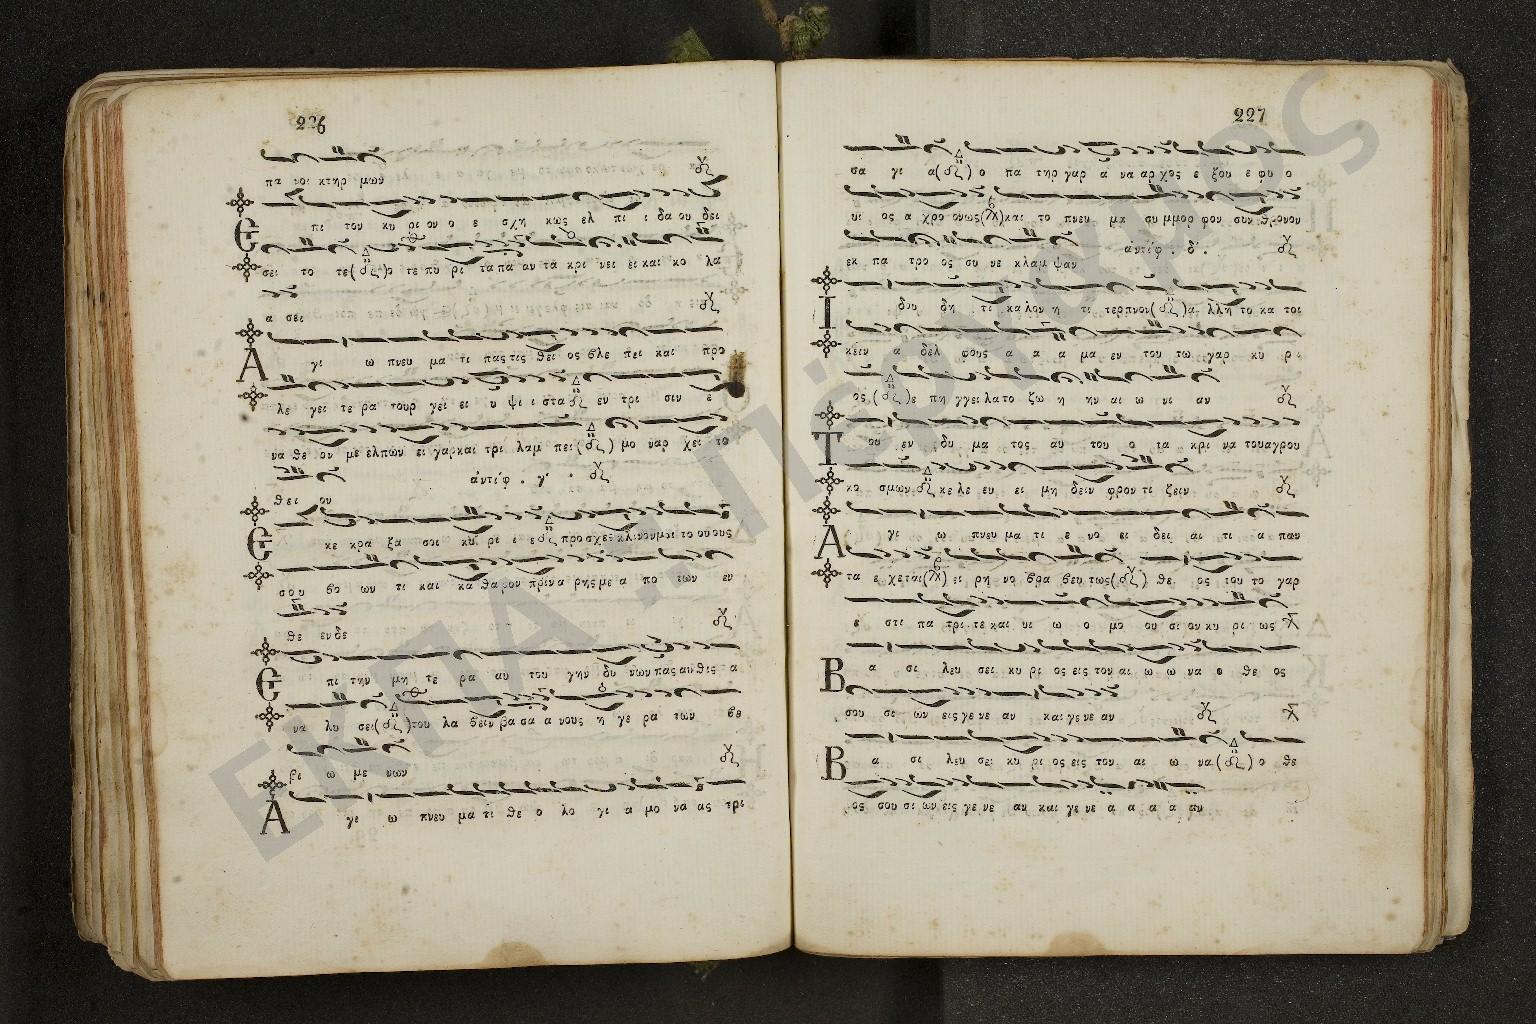 226
πα νοι κτηρ μων
Ε πι τον κυ ρι ον ο ε σχη κως ελ πι ι δα ου δει
σει το τε ( ) ο τε πυ ρι τα πα αν τα κρι νει ει και κο λα
α σει
Α γι ω πνευ μα τι πας τις θει ος βλε πει και προ
λε γει τε ρα τουρ γει ει υ ψι ι στα εν τρι σιν ε
να θε ον με ελπων ει γαρ και τρι λαμ πει ( ) μο ναρ χει το
θει ον
ἀντίφ . γ΄ .
Ε κε κρα ξα σοι κυ ρι ι ε προσχες κλινουμοι το ου ους
σου βο ων τι και κα θα ρον πριν α ρης με α πο των εν
θε ενδε
Ε πι την μη τε ρα αυ του γην δυ νων πας αυθις α
να λυ σει ( ) του λα βειν βα σα α νους η γε ρα των βε
βι ω με νων
Α γι ω πνευ μα τι θε ο λο γι α μο να ας τρι
227
σα γι α ( ) ο πα τηρ γαρ α να αρ χος ε ξου ε φυ ο
υι ος α χρο ονως ( ) και το πνευ μα συ μμορ φον συν θρονον
εκ πα τρο ος συ νε κλαμ ψαν
ἀντίφ . δ΄ .
Ι δου δη τι κα λον η τι τερπνον ( ) α λλη το κα τοι
κειν α δελ φους α α α μα εν του τω γαρ κυ ρι
ος ( ) ε πη γγειλατο ζω η ην αι ω νι αν
Τ ου εν δυ μα τος αυ του ο τα κρι να τουαγρου
κο σμων κε λε ευ ει μη δειν φρον τι ζειν
Α γι ω πνευ μα τι ε νο ει δει αι τι α παν
τα ε χεται ( ) ει ρη νο βρα βευ τως ( ) θε ος του το γαρ
ε στι πα τρι τε και υι ω ο μο ου σι ον κυ ρι ως
Β α σι λευ σει κυ ρι ος εις τον αι ω ω να ο θε ος
σου σι ων εις γε νε αν και γε νε αν
Β α σι λευ σει κυ ρι ος εις τον αι ω να ( ) ο θε
ος σου σι ων εις γε νε αν και γε νε α α α α αν